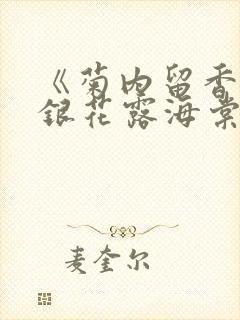 《菊内留香
銀花露海棠
麦奎尔